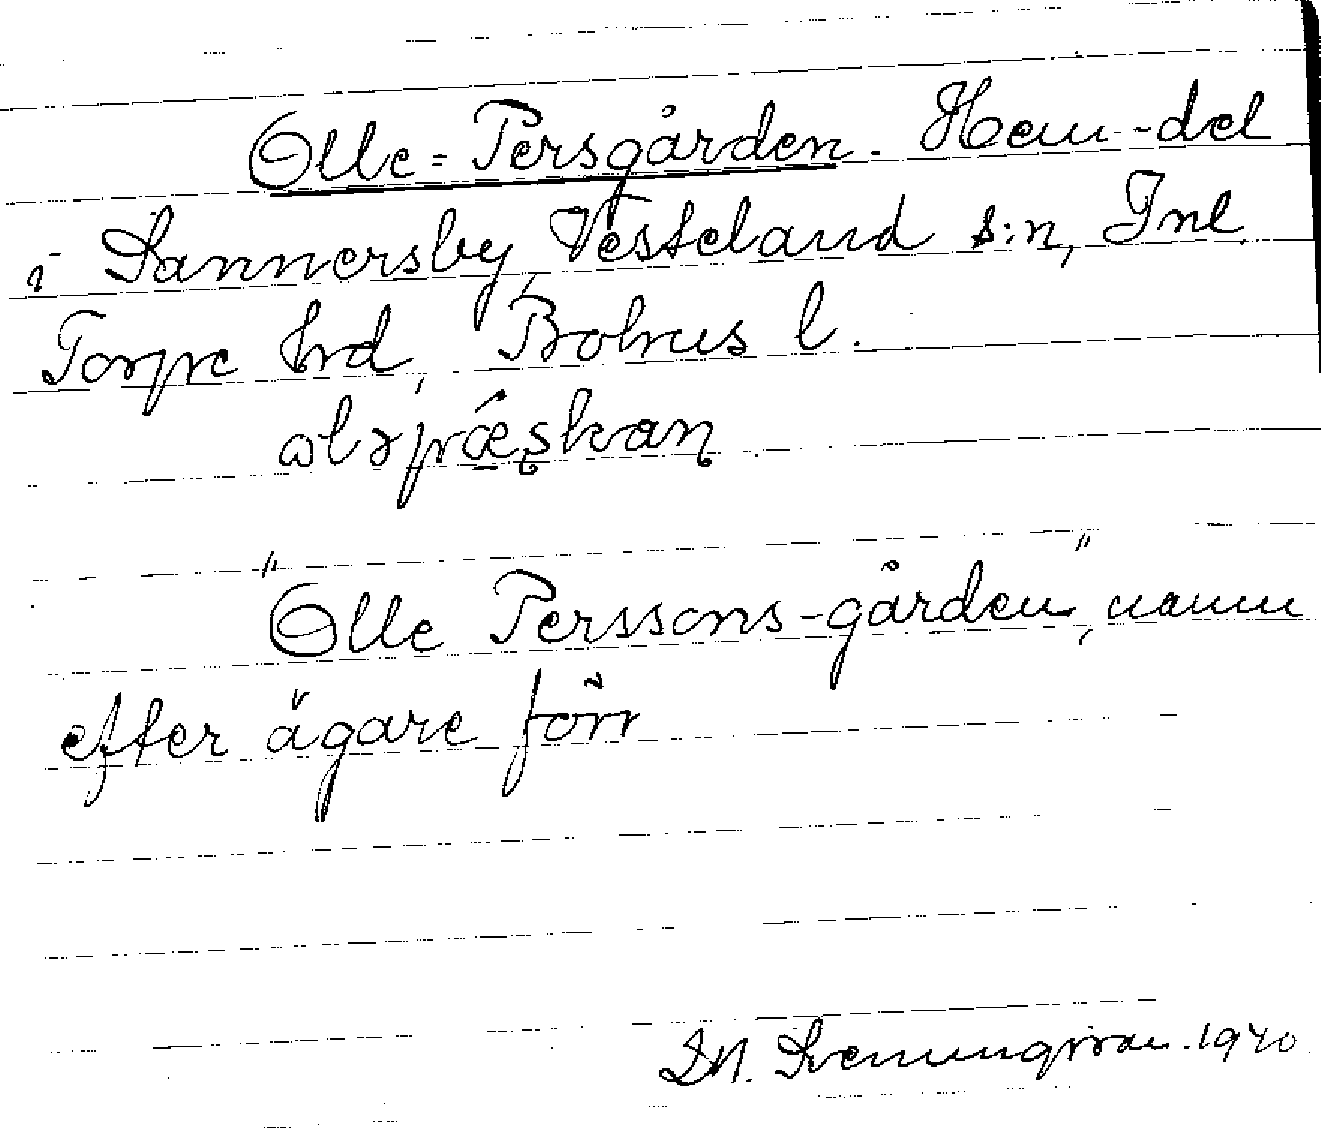 Olle-Persgården. Hem-del
i Sannersby, Västerland s:n, Inl.
Torpe hrd, Bohus l.
"Olle Perssons-gården", namn
efter ägare förr
Svenungsson. 1940